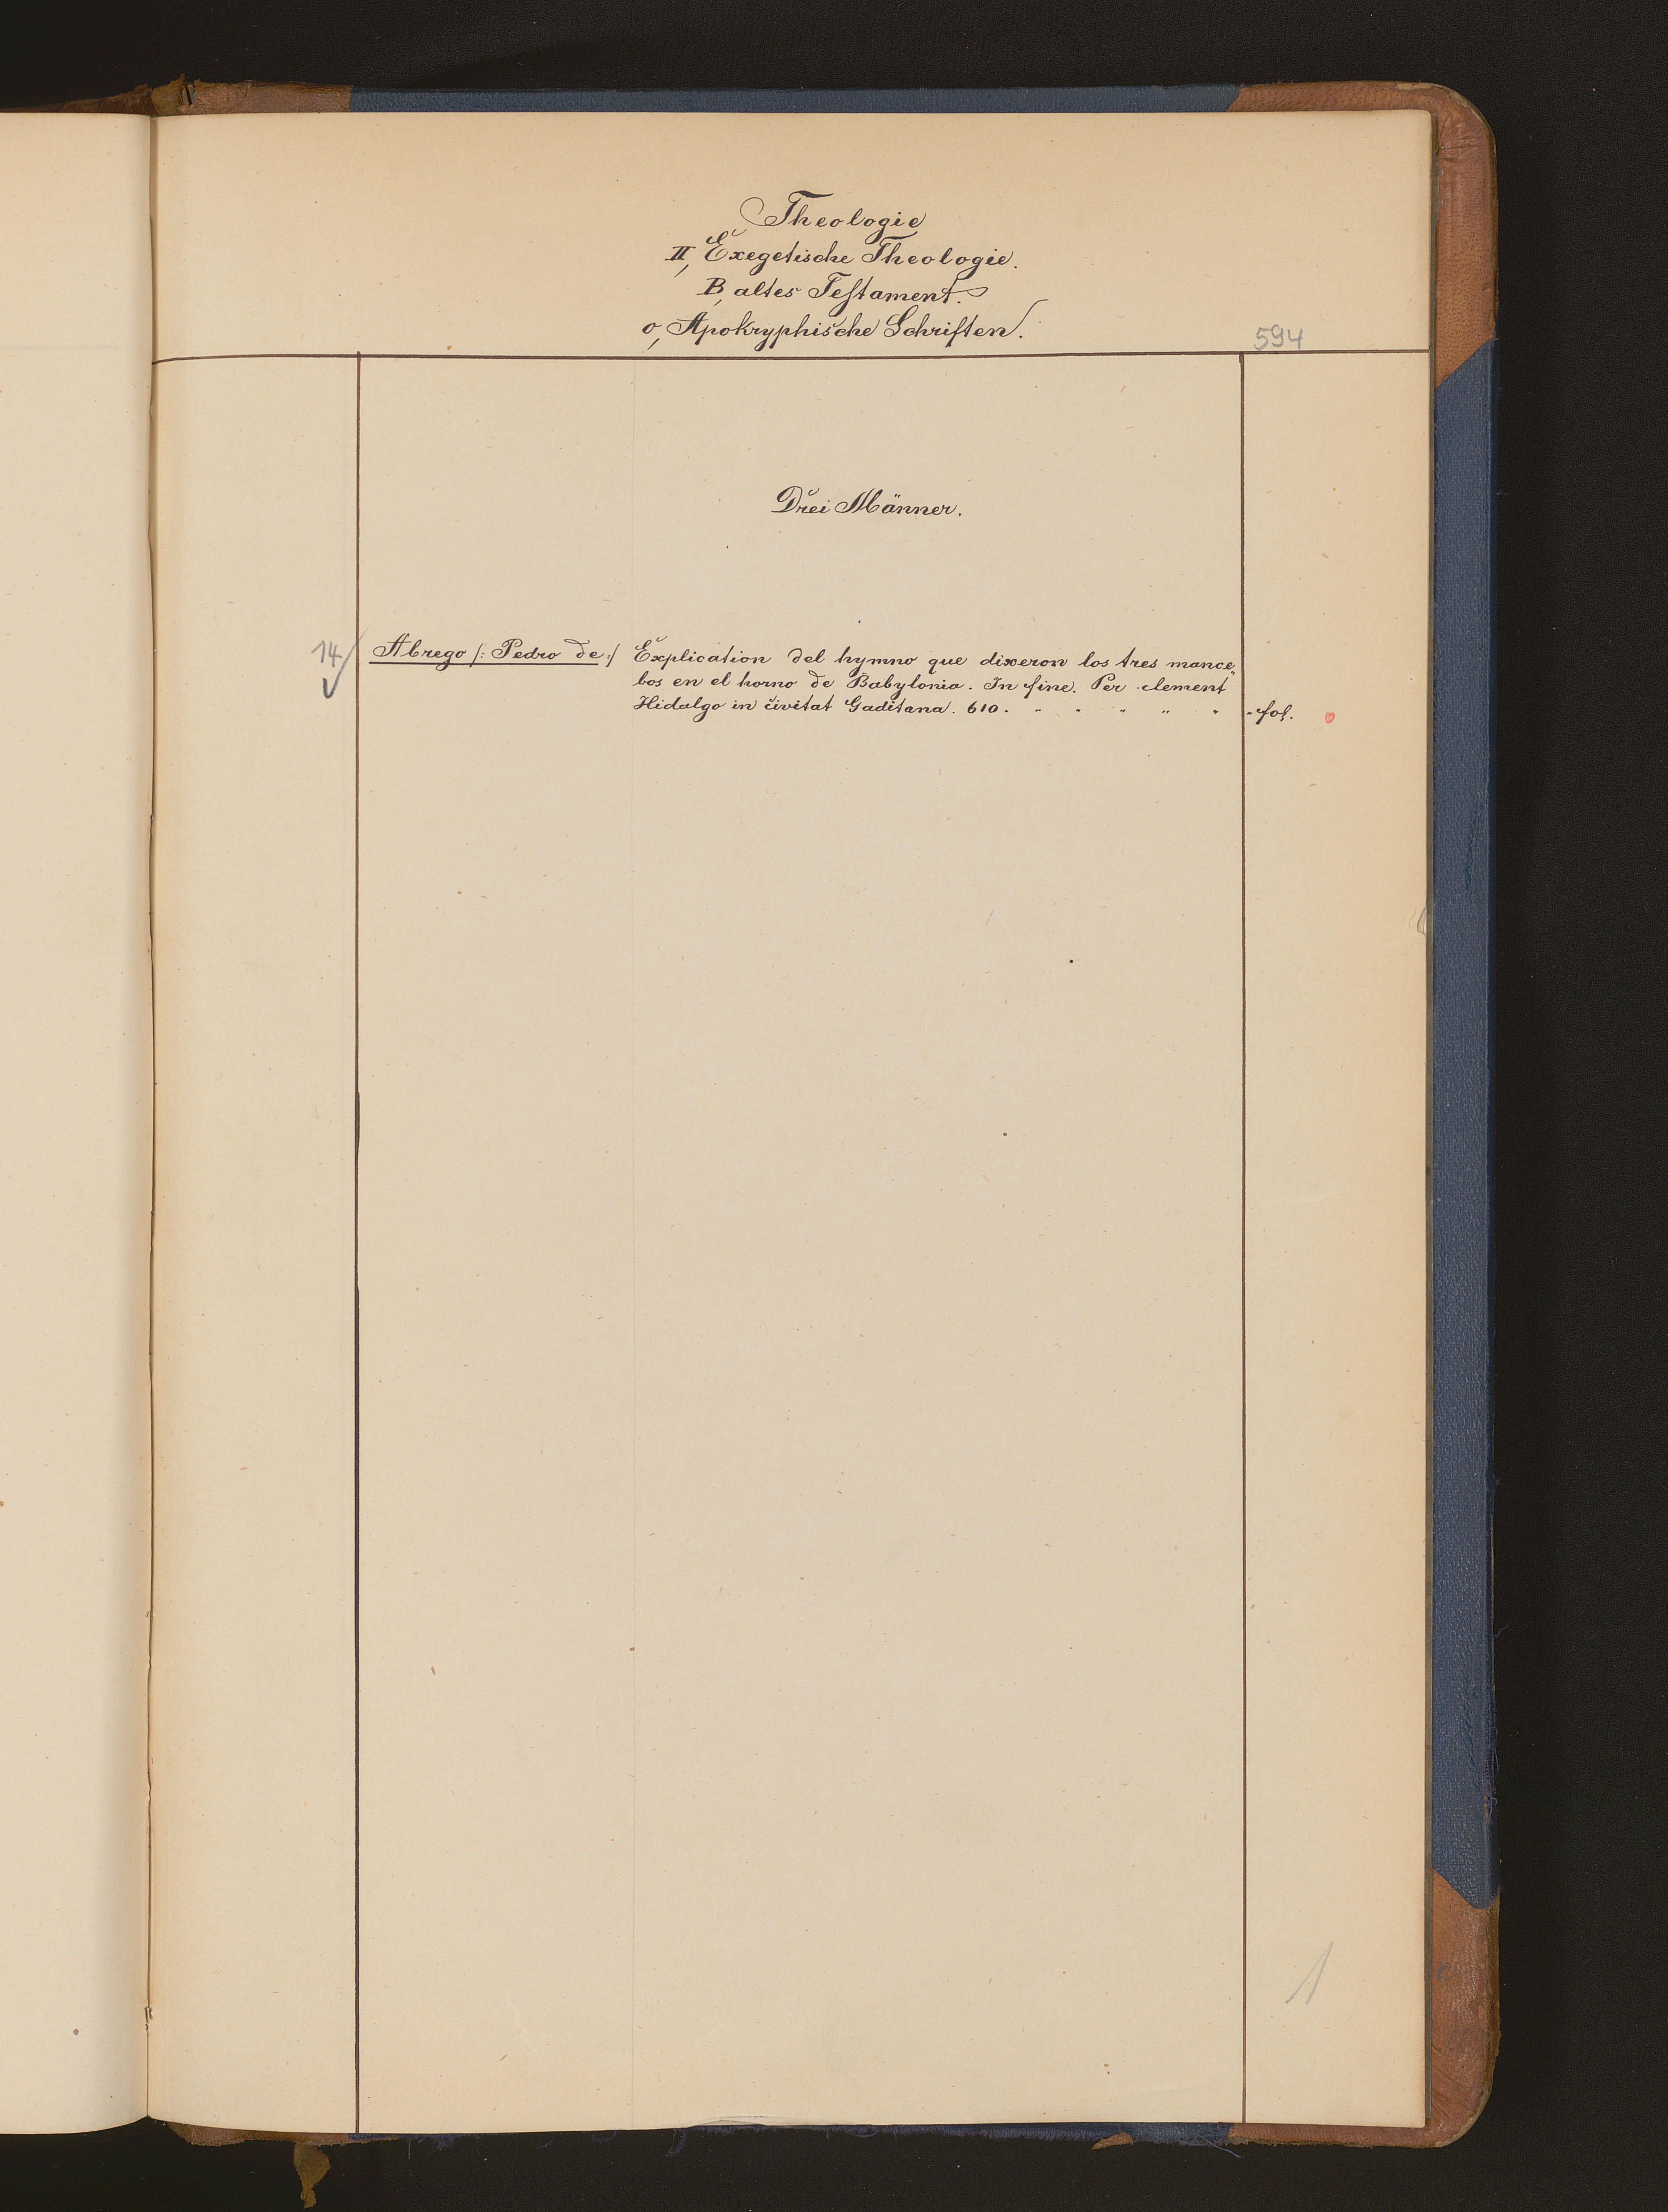 Theologie
II, Exegetische Theologie.
B, altes Testament.
o, Apokryphische Schriften.
594
Drei Männer.
14 Abrego /: Pedro de :/ Explication del hymno que dixeron los tres mance„
bos en el horno de Babylonia. In fine. Per clement
Hidalgo in civitat Gaditana. 610. " " " " " " fol. o
1